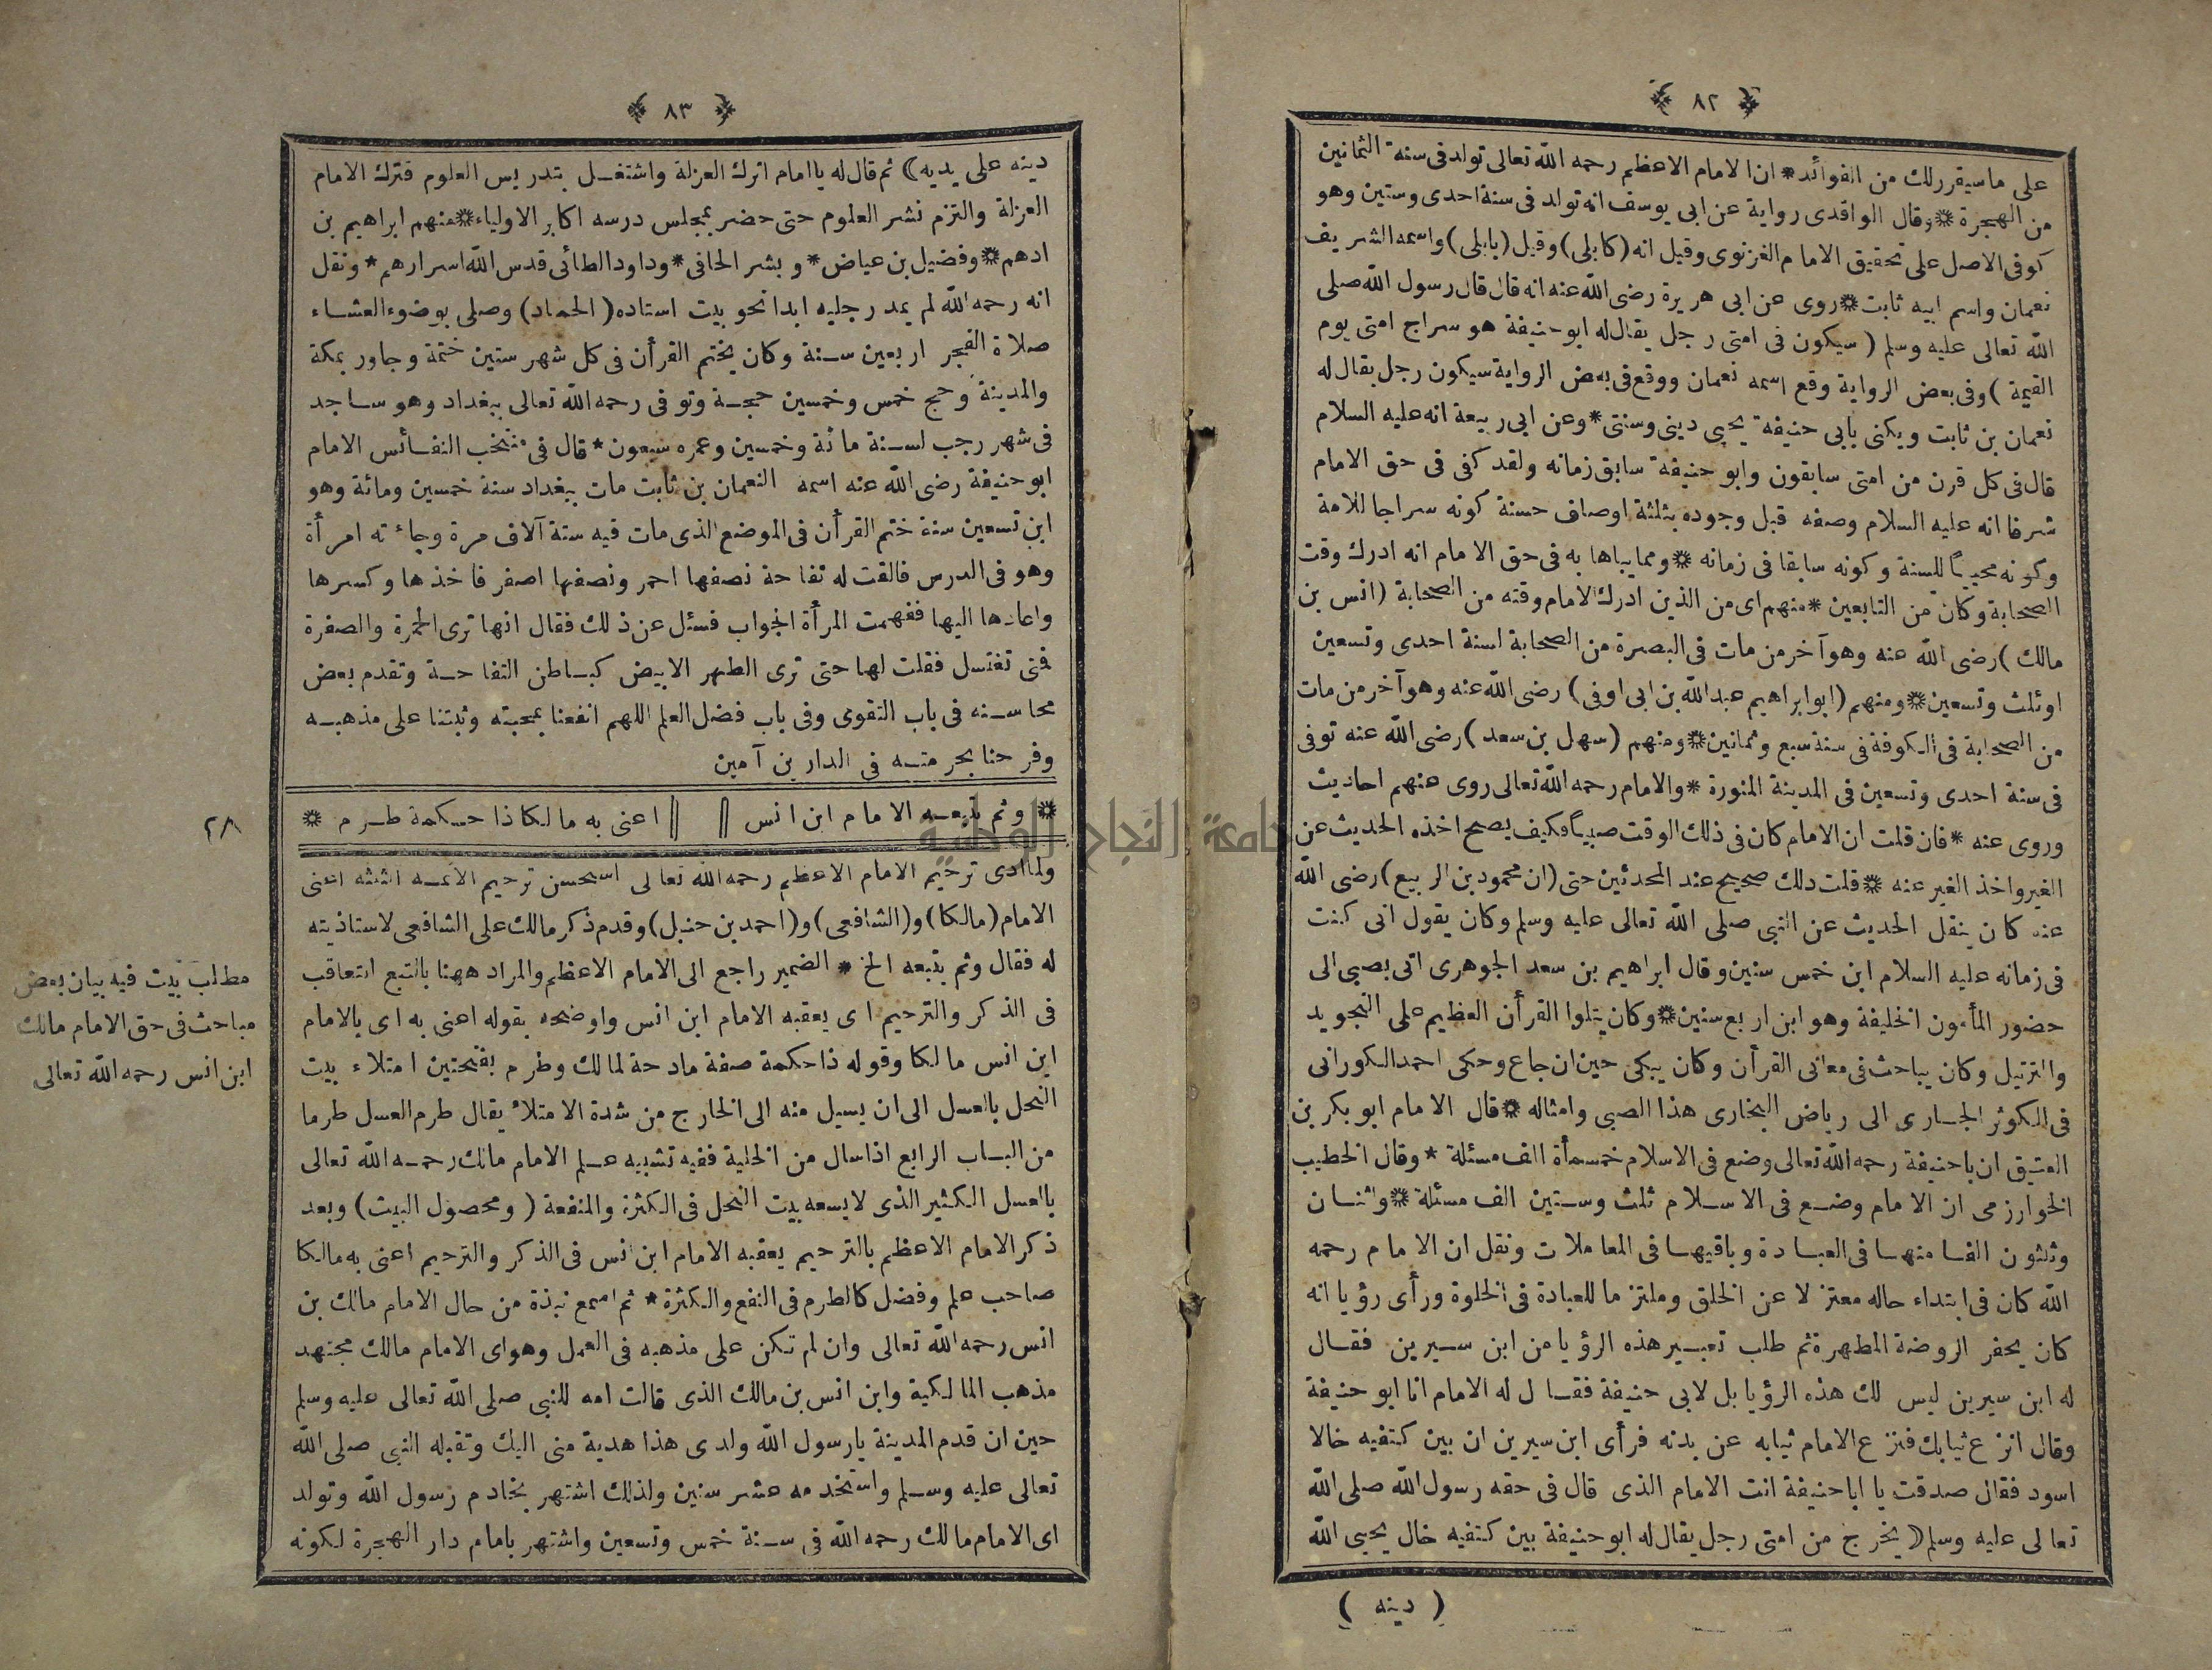 ﴿ ٨٢ ﴾
على ما سيقررلك من الفوائد * ان الامام الاعظم رحمه الله تعالى تولد فى سنة الثمانين
من الهجرة * وقال الواقدى رواية عن ابى يوسف انه تولد فى سنة احدى وستين وهو
كوفى الاصل على تحقيق الامام الغزنوى وقيل انه (كابلى) وقيل (بابلى) واسمه الشريف
نعمان واسم ابيه ثابت * روى عن ابى هريرة رضى الله عنه انه قال قال رسول الله صلى
الله تعالى عليه وسلم ( سيكون فى امتى رجل يقال له ابو حنيفة هو سراج امتى يوم
القيمة ) وفى بعض الرواية وقع اسمه نعمان ووقع فى بعض الرواية سيكون رجل يقال له
نعمان بن ثابت ويكنى بابى حنيفة يحيى دينى وسنتى * وعن ابى ربيعة انه عليه السلام
قال فى كل قرن من امتى سابقون وابو حنيفة سابق زمانه ولقد كفى فى حق الامام
شرفا انه عليه السلام وصفه قبل وجوده بثلثة اوصاف حسنة كونه سراجا للامة
وكونه محييا للسنة وكونه سابقا فى زمانه * ومما يباها به فى حق الامام انه ادرك وقت
الصحابة وكان من التابعين * منهم اى من الذين ادرك الامام وقته من الصحابة (انس بن
مالك ) رضى الله عنه وهو آخر من مات فى البصرة من الصحابة لسنة احدى وتسعين
او ثلث وتسعين * ومنهم (ابو ابراهيم عبد الله بن ابى اوفى) رضى الله عنه وهو آخر من مات
من الصحابة فى الكوفة فى سنة سبع وثمانين * ومنهم (سهل بن سعد ) رضى الله عنه توفى
فى سنة احدى وتسعين فى المدينة المنورة * والامام رحمه الله تعالى روى عنهم احاديث
وروى عنه * فان قلت ان الامام كان فى ذلك الوقت صبيا فكيف يصح اخذه الحديث عن
الغير واخذ الغير عنه * قلت ذلك صحيح عند المحدثين حتى (ان محمود بن الربيع) رضى الله
عنه كان ينقل الحديث عن النبى صلى الله تعالى عليه وسلم وكان يقول انى كنت
فى زمانه عليه السلام ابن خمس سنين وقال ابراهيم بن سعد الجوهرى اتى بصبى الى
حضور المأمون الخليفة وهو ابن اربع سنين * وكان يتلوا القرأن العظيم على التجويد
والترتيل وكان يباحث فى معانى القرأن وكان يبكى حين ان جاع وحكى احمد الكورانى
فى الكوثر الجارى الى رياض البخارى هذا الصبى وامثاله * قال الامام ابو بكر بن
العتيق ان باحنيفة رحمه الله تعالى وضع فى الاسلام خمسمأة الف مسئلة * وقال الخطيب
الخوارزمى ان الامام وضع فى الاسلام ثلث وستين الف مسئلة * واثنان
وثلثون الفا منها فى العبادة وباقيها فى المعاملات ونقل ان الامام رحمه
الله كان فى ابتداء حاله معتزلا عن الخلق وملتزما للعبادة فى الخلوة ورأى رؤيا انه
كان يحفر الروضة المطهرة ثم طلب تعبير هذه الرؤيا من ابن سيرين فقال
له ابن سيرين ليس لك هذه الرؤيا بل لابى حنيفة فقال له الامام انا ابو حنيفة
وقال انزع ثيابك فنزع الامام ثيابه عن بدنه فرأى ابن سيرين ان بين كتفيه خالا
اسود فقال صدقت يا ابا حنيفة انت الامام الذى قال فى حقه رسول الله صلى الله
تعالى عليه وسلم ( يخرج من امتى رجل يقال له ابو حنيفة بين كتفيه خال يحيى الله
( دينه )
﴿ ٨٣ ﴾
دينه على يديه ) ثم قال له يا امام اترك العزلة واشتغل بتدريس العلوم فترك الامام
العزلة والتزم نشر العلوم حتى حضر بمجلس درسه اكابر الاولياء * منهم ابراهيم بن
ادهم * وفضيل بن عياض * وبشر الحافى * وداود الطائى قدس الله اسرارهم * ونقل
انه رحمه الله لم يمد رجليه ابدا نحو بيت استاده ( الحماد) وصلى بوضوء العشاء
صلاة الفجر اربعين سنة وكان يختم القرأن فى كل شهر ستين ختمة وجاور بمكة
والمدينة وحج خمس وخمسين حجة وتوفى رحمه الله تعالى ببغداد وهو ساجد
فى شهر رجب لسنة مائة وخمسين وعمره سبعون * قال فى منتخب النفائس الامام
ابو حنيفة رضى الله عنه اسمه النعمان بن ثابت مات ببغداد سنة خمسين ومائة وهو
ابن تسعين سنة ختم القرأن فى الموضع الذى مات فيه ستة آلاف مرة وجاءته امرأة
وهو فى الدرس فالقت له تفاحة نصفها احمر ونصفها اصفر فاخذها وكسرها
واعادها اليها ففهمت المرأة الجواب فسئل عن ذلك فقال انها ترى الحمرة والصفرة
فمتى تغتسل فقلت لها حتى ترى الطهر الابيض كباطن التفاحة وتقدم بعض
محاسنه فى باب التقوى وفى باب فضل العلم اللهم انفعنا بمحبته وثبتنا على مذهبه
وفرحنا بحرمته فى الدارين آمين
* وثم يتبعه الامام ابن انس || || اعنى به مالكا ذا حكمة طرم *
٢٨
ولما ادى ترحيم الامام الاعظم رحمه الله تعالى استحسن ترحيم الائمة الثلثة اعنى
الامام (مالكا) و(الشافعى) و(احمد بن حنبل) وقدم ذكر مالك على الشافعى لاستاذيته
له فقال وثم يتبعه الخ * الضمير راجع الى الامام الاعظم والمراد ههنا بالتبع التعاقب
فى الذكر والترحيم اى يعقبه الامام ابن انس واوضحه بقوله اعنى به اى بالامام
ابن انس مالكا وقوله ذا حكمة صفة مادحة لمالك وطرم بفتحتين امتلاء بيت
النحل بالعسل الى ان يسيل منه الى الخارج من شدة الامتلاء يقال طرم العسل طرما
من الباب الرابع اذا سال من الخلية ففيه تشبيه علم الامام مالك رحمه الله تعالى
بالعسل الكثير الذى لا يسعه بيت النحل فى الكثرة والمنفعة ( ومحصول البيت ) وبعد
ذكر الامام الاعظم بالترحيم يعقبه الامام ابن انس فى الذكر والترحيم اعنى به مالكا
صاحب علم وفضل كالطرم فى النفع والكثرة * ثم اسمع نبذة من حال الامام مالك بن
انس رحمه الله تعالى وان لم تكن على مذهبه فى العمل وهو اى الامام مالك مجتهد
مذهب المالكية وابن انس بن مالك الذى قالت امه للنبى صلى الله تعالى عليه وسلم
حين ان قدم المدينة يا رسول الله ولدى هذا هدية منى اليك وتقبله النبى صلى الله
تعالى عليه وسلم واستخدمه عشر سنين ولذلك اشتهر بخادم رسول الله وتولد
اى الامام مالك رحمه الله فى سنة خمس وتسعين واشتهر بامام دار الهجرة لكونه
مطلب بيت فيه بيان بعض
مباحث فى حق الامام مالك
ابن انس رحمه الله تعالى
جامعة النجاح الوطنية